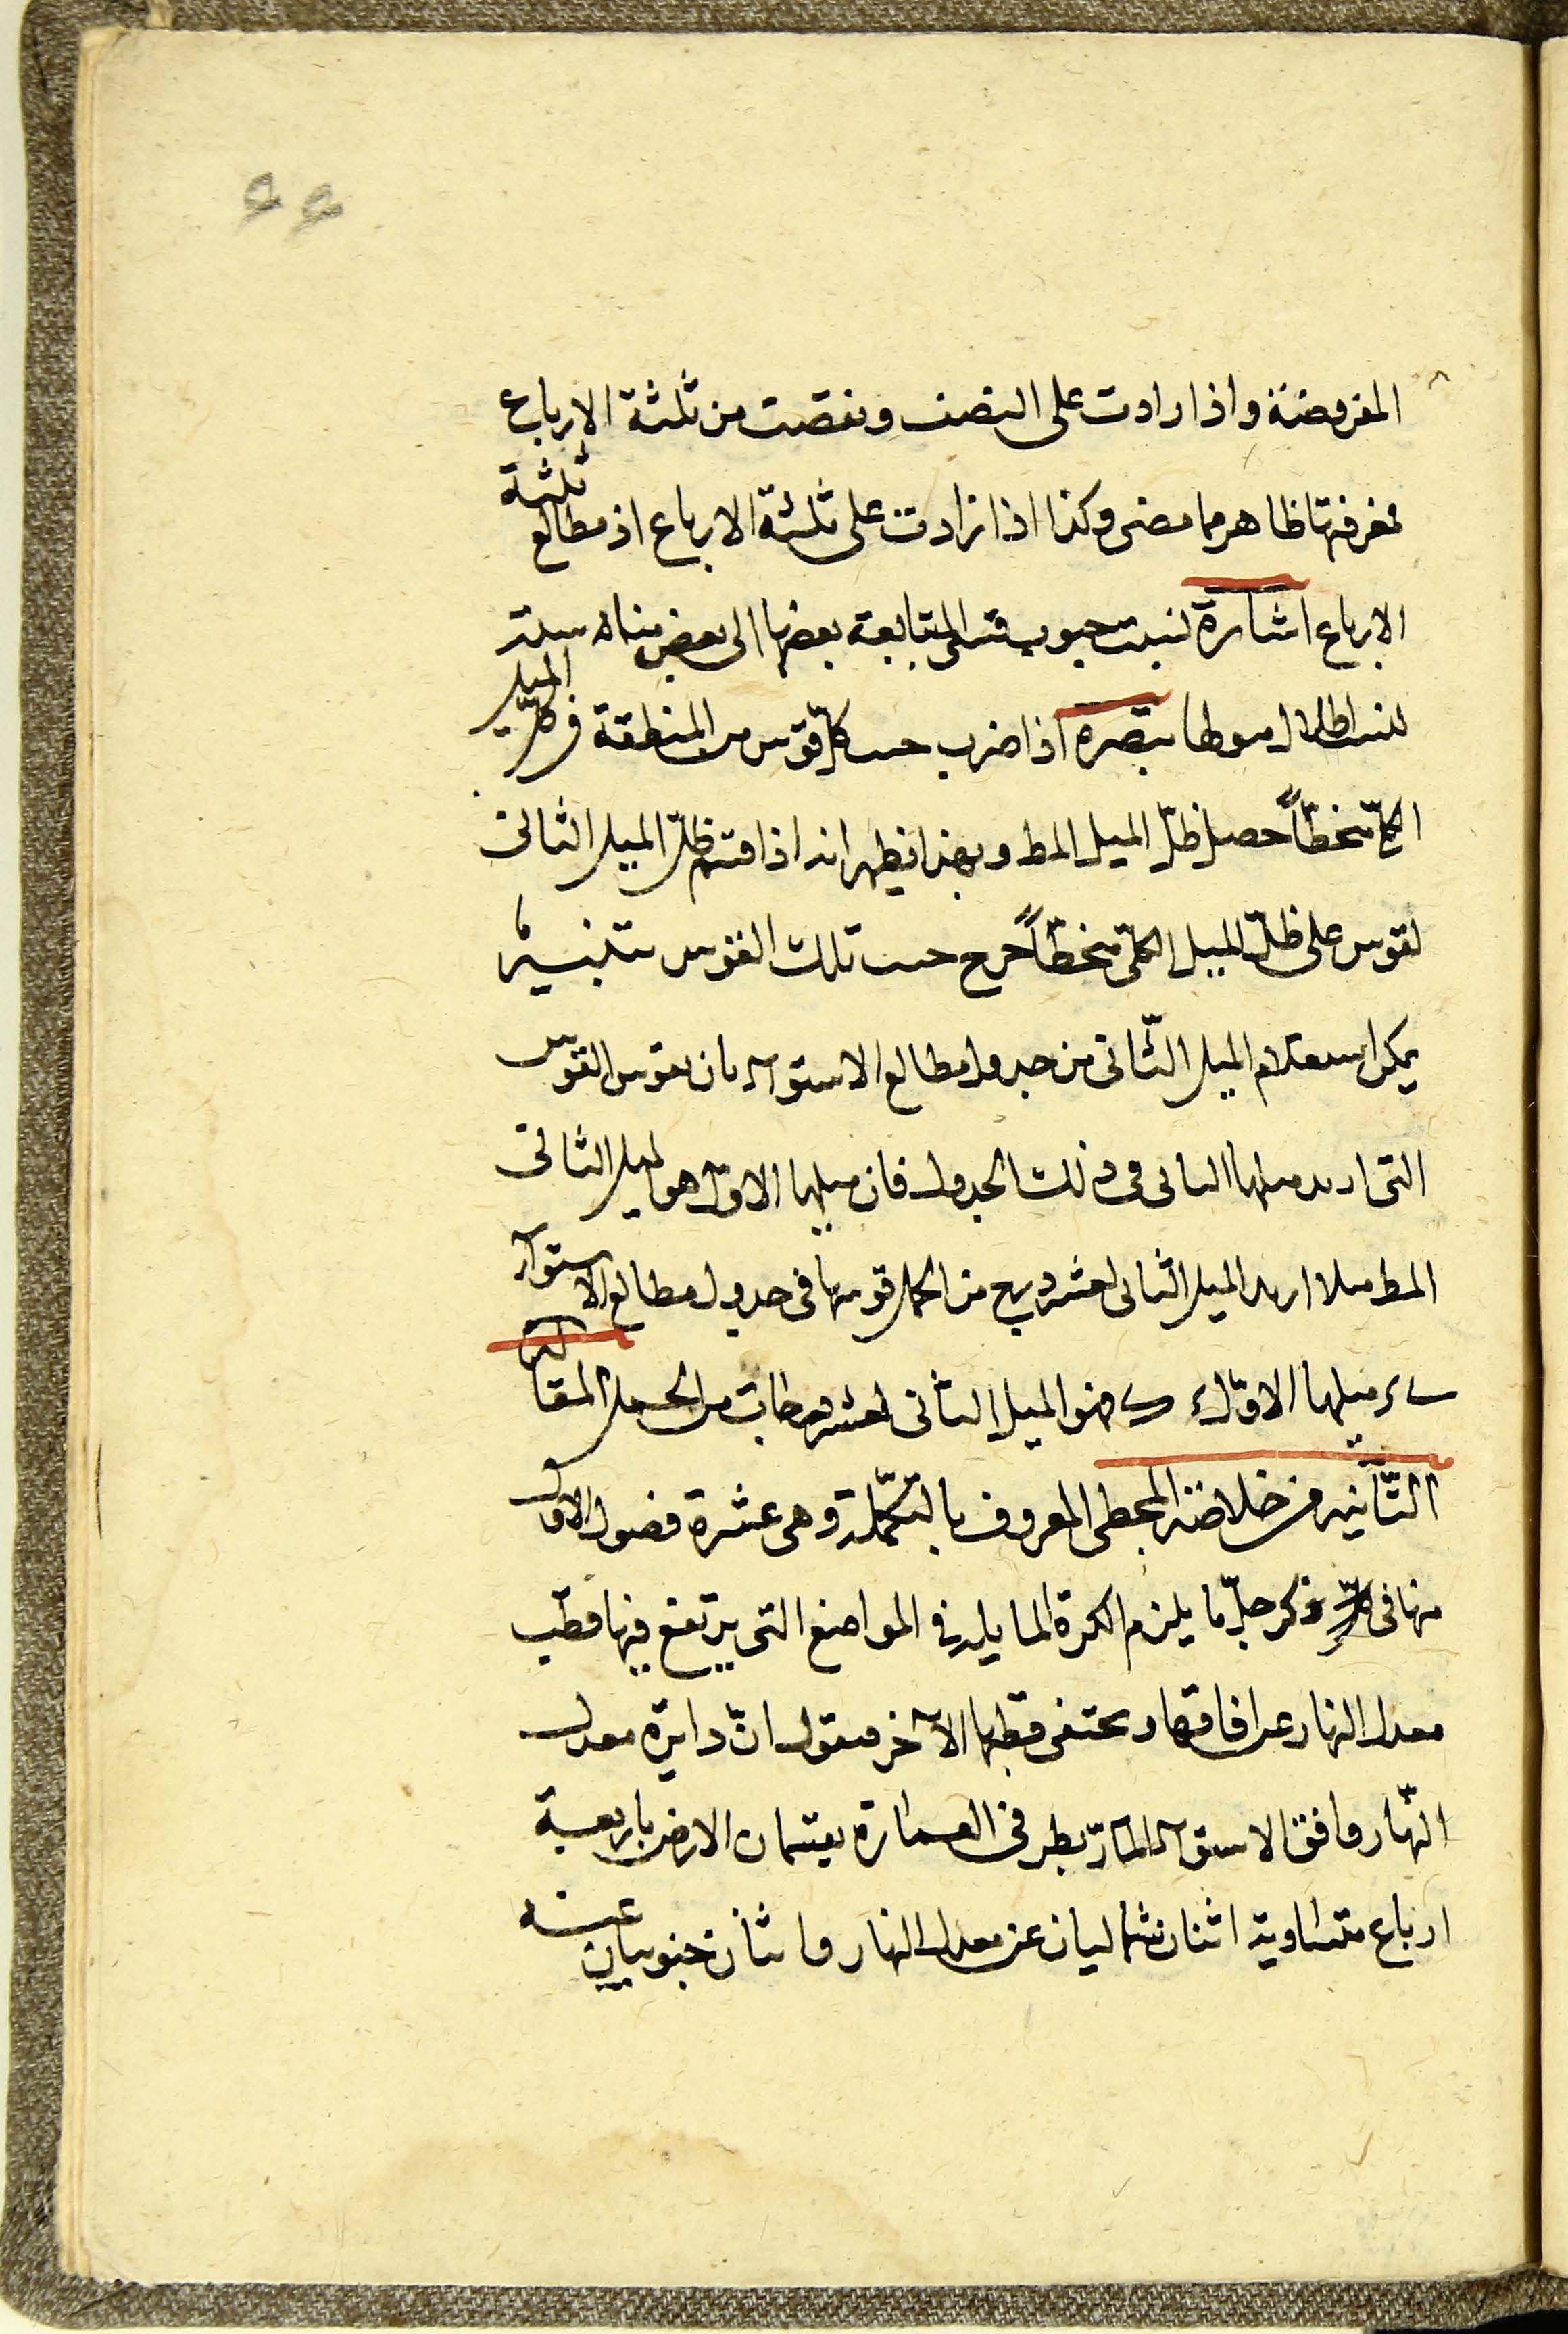 المفروضة واذا زادت على النصف ونقصت من ثلثة الارباع
فمعرفتها ظاهر مما مضى وكذا اذا زادت على ثلثة الارباع اذ مطالع ثلثة
الارباع اشارة نسبة جيوب قسى المتتابعة بعضها الى بعض
تبصرة اذا ضرب جيب كل قوس من المنطقة فى ظل الميل
الكلى منحطاً حصل ظل الميل المط وبهذا يظهر انه اذا قسم ظل الميل الثانى
لقوس على ظل الميل الكلى منحطاً خرج جيب تلك القوس تنبيه
يمكن استعلام الميل الثانى من جدول مطالع الاستوآء بان يقوس القوس
التى اريد ميلها الثانى فى ذلك الجدول فان ميلها الاول هو الميل الثانى
المط مثلا اريد الميل الثانى لعشر درج من الحمل قوسها فى جدول مطالع الاستوآء
ميلها الاول فهو الميل الثانى لعشر درجات من الحمل المقالة
الثانيه من خلاصة المجطى المعروف بالتكملة وهى عشرة فصول الاول
منها فى ذكر جل ما يلزم الكرة المايله فى المواضع التى يرتفع فيها قطب
معدل النهار عن افاقها ويختفى قطبها الآخر فنقول ان دايرة معدل
النهار وافق الاستوآء المار بطرفى العمارة يقسمان الارض باربعة
ارباع متساوية اثنان شماليان عن معدل النهار واثنان جنوبيان عنه